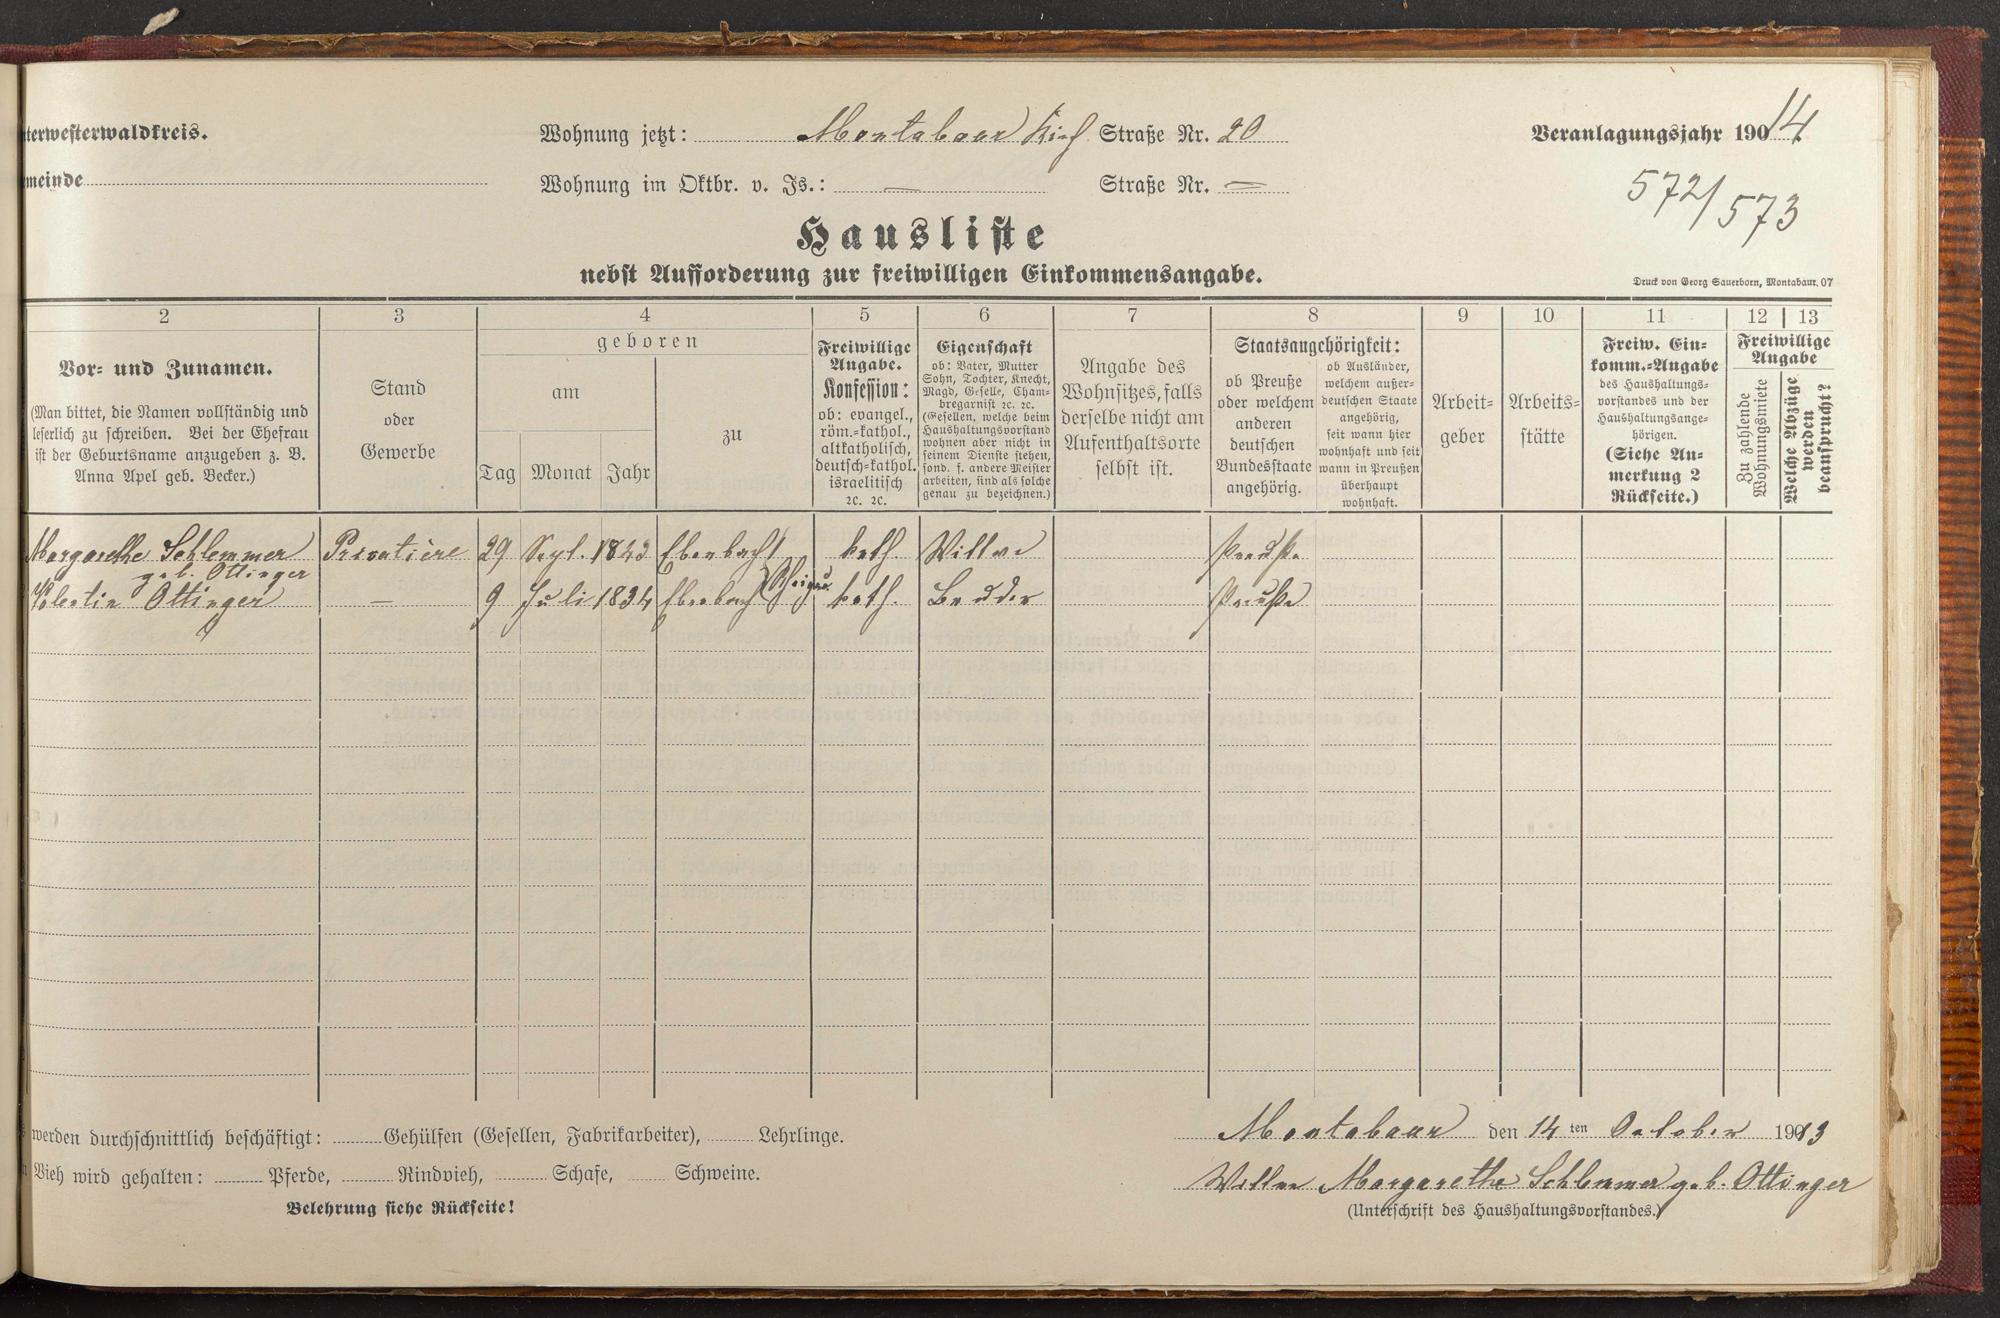 terwesterwaldkreis.
Wohnung jetzt: Montabaur Kirch Straße Nr. 20
Veranlagungsjahr 1914
meinde
Wohnung im Oktbr. v. Js.: — Straße Nr. —
572/573
Hausliste
nebst Aufforderung zur freiwilligen Einkommensangabe.
Druck von Georg Sauerborn, Montabaur. 07
2
Vor- und Zunamen.
(Man bittet, die Namen vollständig und
leserlich zu schreiben. Bei der Ehefrau
ist der Geburtsname anzugeben z. B.
Anna Apel geb. Becker.)
3
Stand
oder
Gewerbe
4
geboren
am
Tag Monat Jahr
zu
5
Freiwillige
Angabe.
Konfession:
ob: evangel.,
röm.-kathol.,
altkatholisch,
deutsch-kathol.
israelitisch
2c. 2c.
6
Eigenschaft
ob: Vater, Mutter
Sohn, Tochter, Knecht,
Magd, Geselle, Cham-
bregarnist 2c. 2c.
(Gesellen, welche beim
Haushaltungsvorstand
wohnen aber nicht in
seinem Dienste stehen,
sond. f. andere Meister
arbeiten, sind als solche
genau zu bezeichnen.)
7
Angabe des
Wohnsitzes, falls
derselbe nicht am
Aufenthaltsorte
selbst ist.
8
Staatsangehörigkeit:
ob Preuße
oder welchem
anderen
deutschen
Bundesstaate
angehörig.
ob Ausländer,
welchem außer-
deutschen Staate
angehörig,
seit wann hier
wohnhaft und seit
wann in Preußen
überhaupt
wohnhaft.
9
Arbeit-
geber
10
Arbeits-
stätte
11
Freiw. Ein-
komm.-Angabe
des Haushaltungs-
vorstandes und der
Haushaltungsange-
hörigen.
(Siehe An-
merkung 2
Rückseite.)
12 13
Freiwillige
Angabe
Zu zahlende
Wohnungsmiete
Welche Abzüge
werden
beansprucht?
Margarethe Schlemmer Privatière 29 Sept. 1843 Eberbach kath. Wittwe Preuße
geb. Ottinger
Valentin Ottinger — 9 Juli 1834 Eberbach (Rheingau. kath. Bruder Preuße
werden durchschnittlich beschäftigt: Gehülfen (Gesellen, Fabrikarbeiter), Lehrlinge.
Vieh wird gehalten: Pferde, Rindvieh, Schafe, Schweine.
Belehrung siehe Rückseite!
Montabaur den 14 ten October 1913
Wittwe Margarethe Schlemmer geb. Ottinger
(Unterschrift des Haushaltungsvorstandes.)